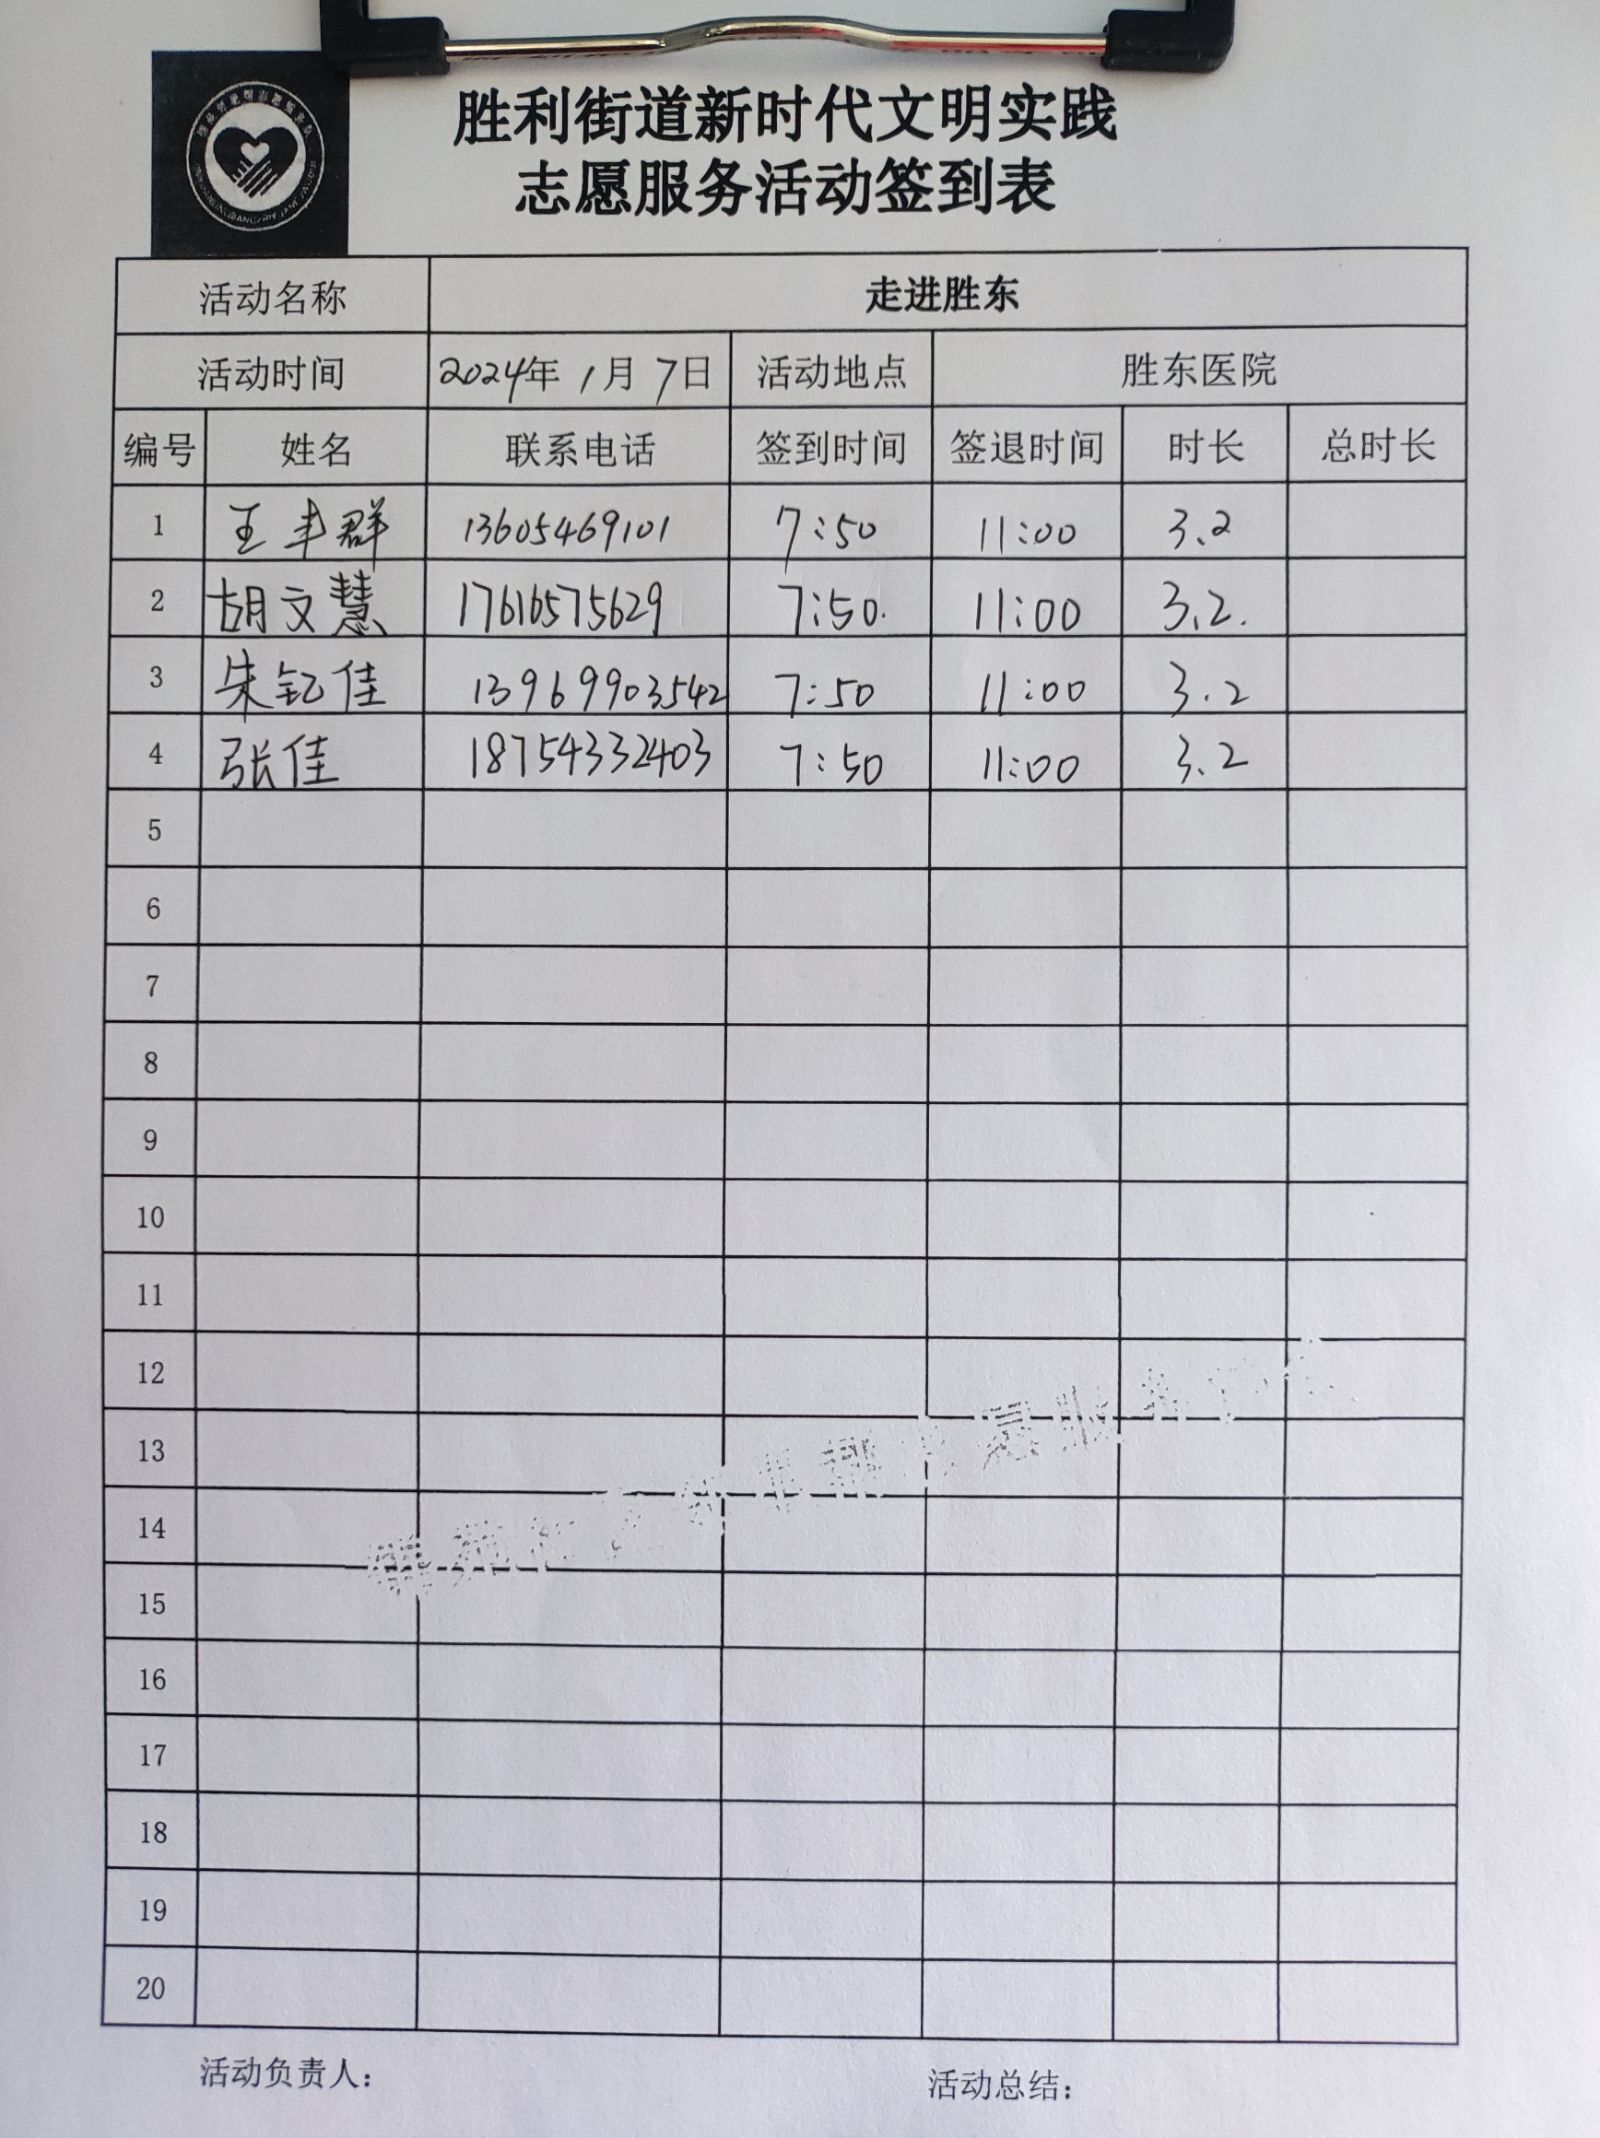 胜利街道新时代文明实践
志愿服务活动签到表
活动名称 走进胜东
活动时间 2024年 1月 7日 活动地点 胜东医院
编号 姓名 联系电话 签到时间 签退时间 时长 总时长
1 王丰群 13605469101 7:50 11:00 3.2
2 胡文慧 17616575629 7:50. 11:00 3.2.
3 朱钇佳 13969903542 7:50 11:00 3.2
4 张佳 18754332403 7:50 11:00 3.2
5
6
7
8
9
10
11
12
13
14
15
16
17
18
19
20
活动负责人： 活动总结：